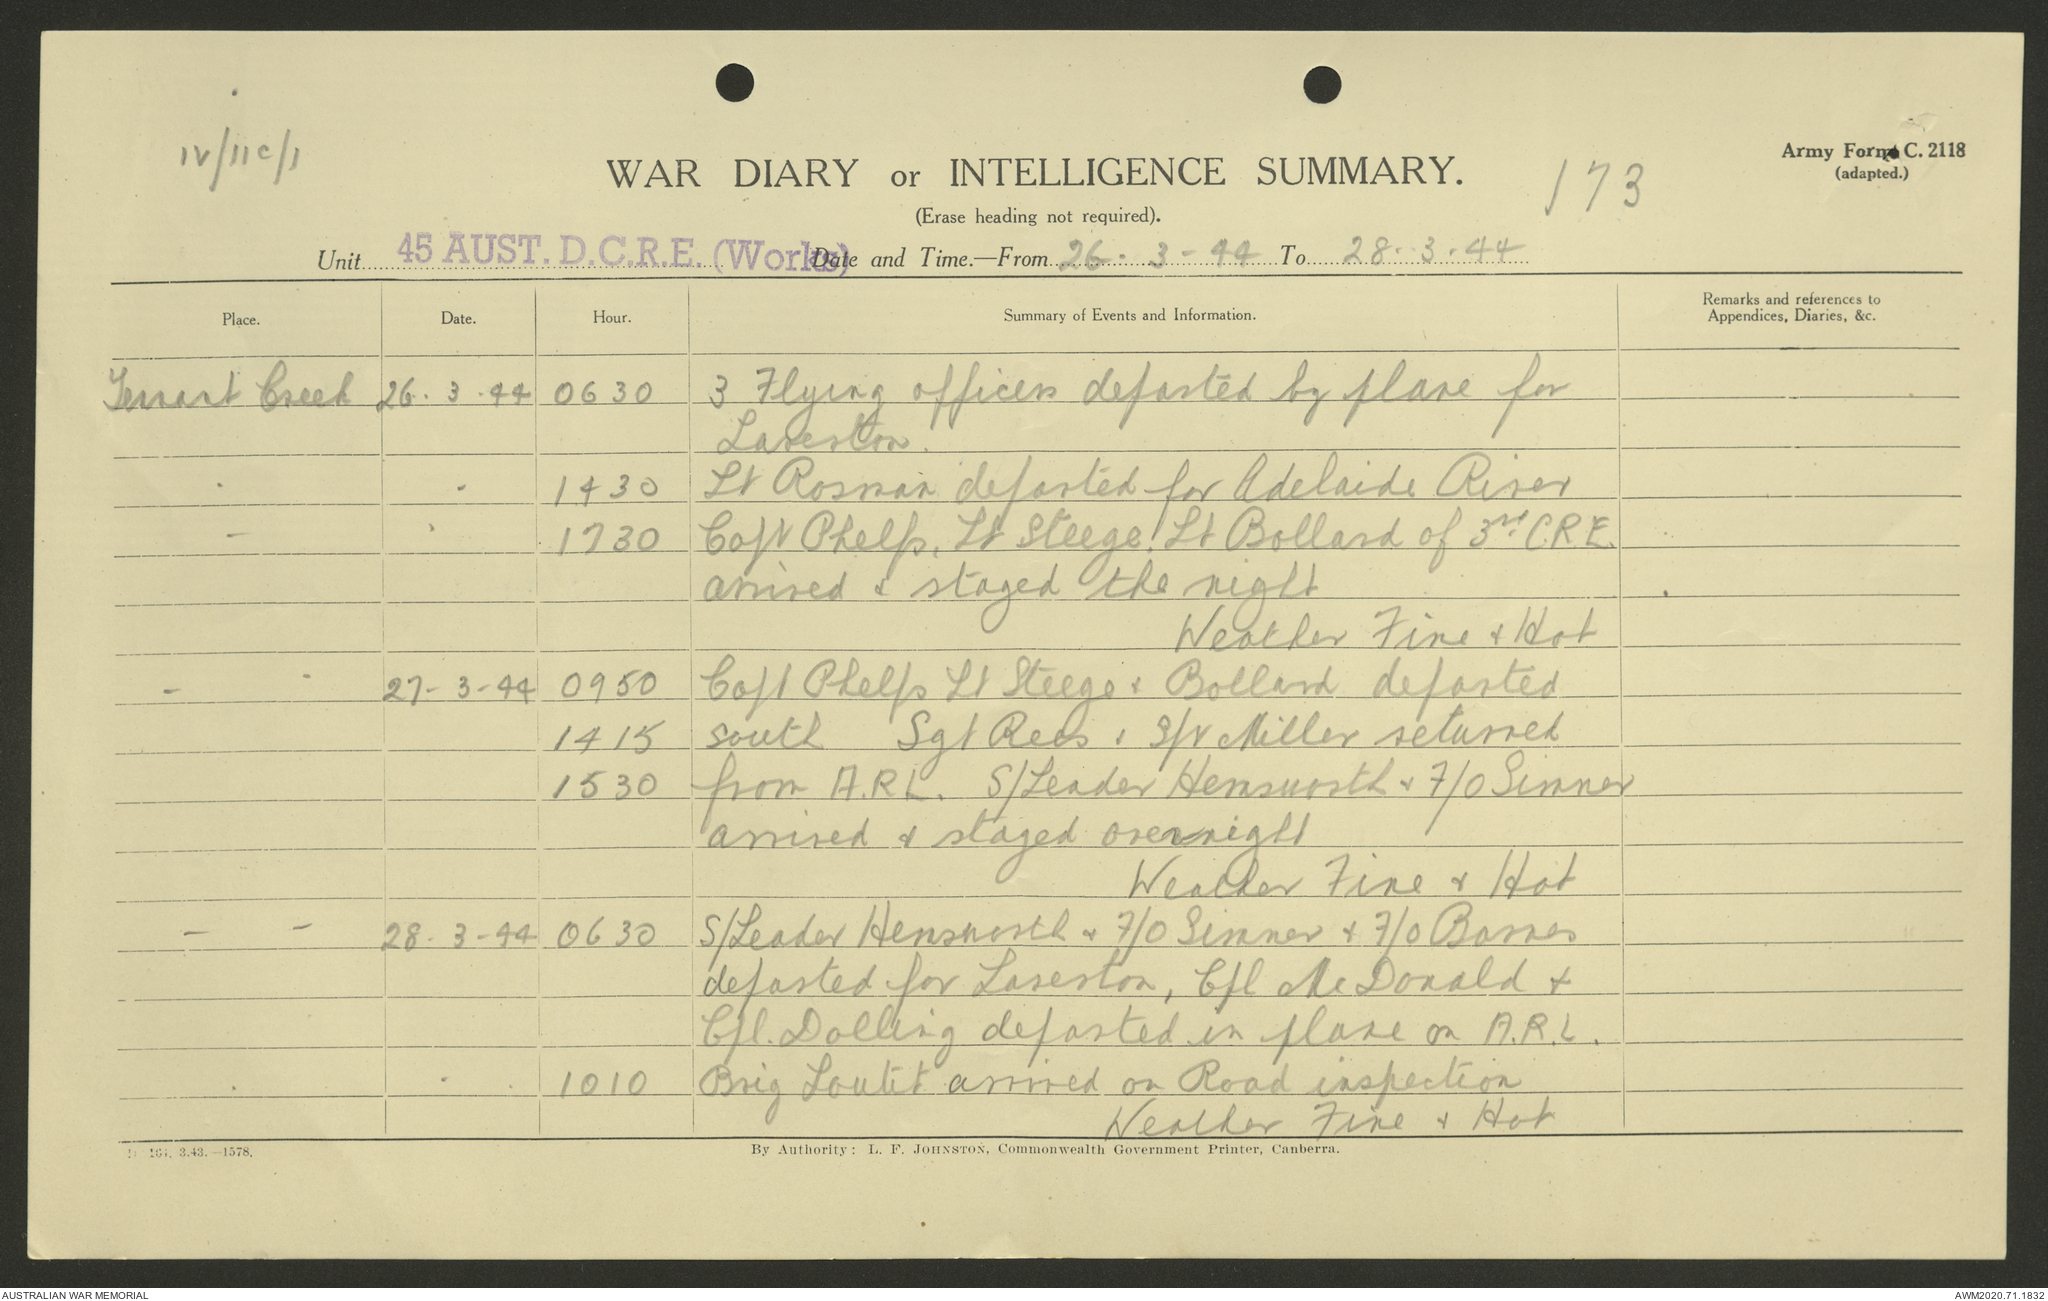 IV/11c/1
WAR DIARY or INTELLIGENCE SUMMARY.
173
Army Form C. 2118
(adapted.)
(Erase heading not required).
Unit 45 AUST. D.C.R.E. (Works) Date and Time.—From 26. 3 - 44 To 28. 3. 44
Place. Date. Hour. Summary of Events and Information. Remarks and references to
Appendices, Diaries, &c.
Tennant Creek 26. 3. 44 0630 3 Flying officers departed by plane for
Laverton.
1430 Lt Rosman departed for Adelaide River
1730 Capt Phelps, Lt Steege, Lt Bollard of 3rd C.R.E.
arrived & staged the night
Weather Fine & Hot
27-3-44 0950 Capt Phelps Lt Steege & Bollard departed
1415 south Sgt Rees & Spr Miller returned
1530 from A.R.L. S/Leader Hemsworth & F/O Simner
arrived & staged overnight
Weather Fine & Hot
28-3-44 0630 S/Leader Hemsworth & F/O Simner & F/O Barnes
departed for Laverton, Cpl McDonald &
Cpl. Dolling departed in plane on A.R.L.
1010 Brig Loutit arrived on Road inspection
Weather Fine & Hot
164. 3.43.—1578.
By Authority: L. F. JOHNSTON, Commonwealth Government Printer, Canberra.
AUSTRALIAN WAR MEMORIAL
AWM2020.71.1832